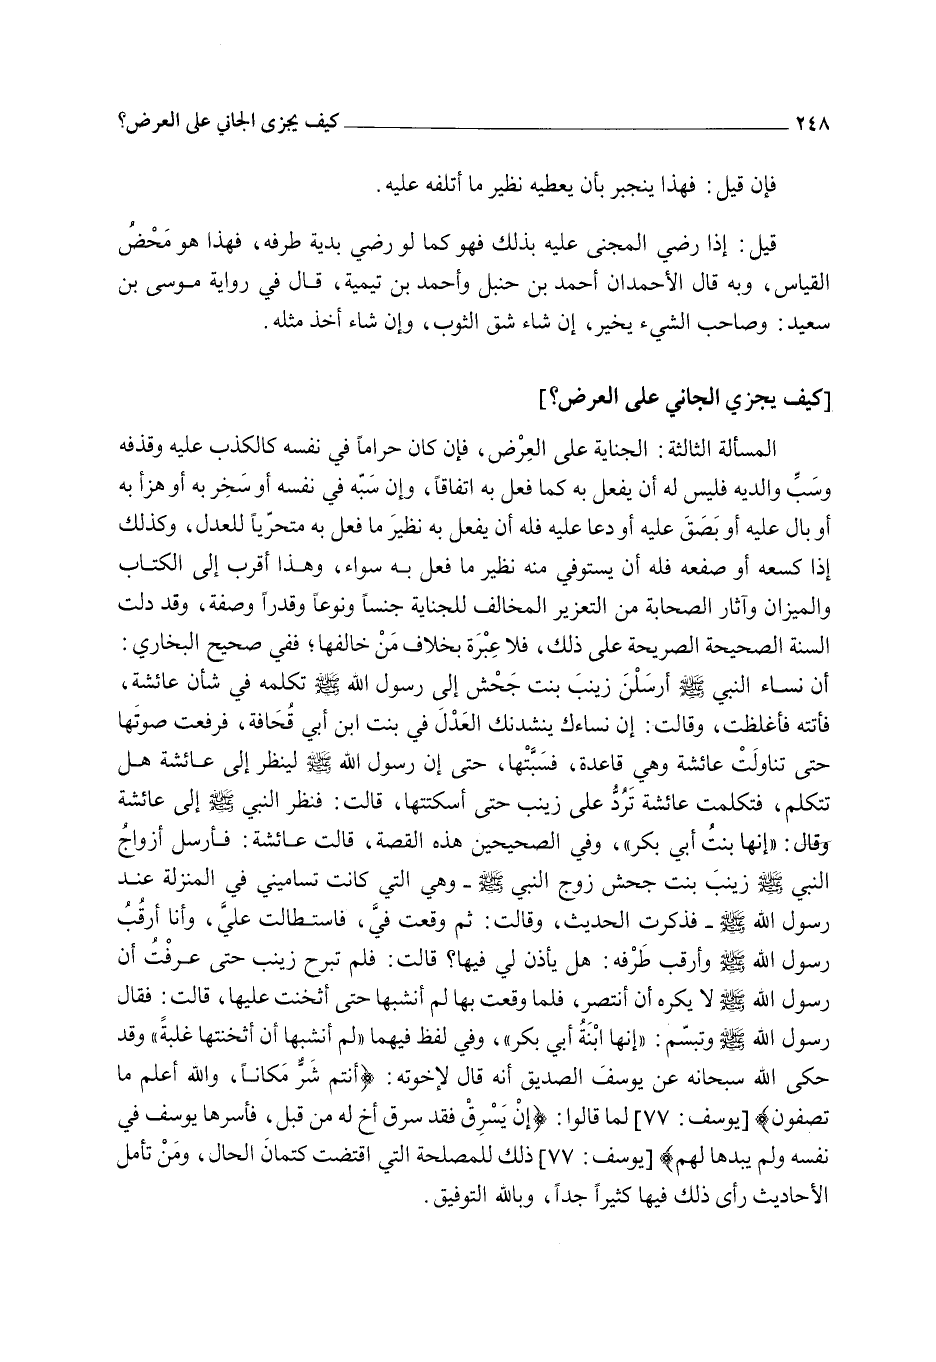 ٢٤٨ ـــــــــــــــــــــــــــــ كيف يجزى الجاني على العرض؟
فإن قيل: فهذا ينجبر بأن يعطيه نظير ما أتلفه عليه.
قيل: إذا رضي المجنى عليه بذلك فهو كما لو رضي بدية طرفه، فهذا هو مَحْضُ
القياس، وبه قال الأحمدان أحمد بن حنبل وأحمد بن تيمية، قـال في رواية مـوسى بن
سعيد: وصاحب الشيء يخير، إن شاء شق الثوب، وإن شاء أخذ مثله.
[كيف يجزي الجاني على العرض؟]
المسألة الثالثة: الجناية على العِرْض، فإن كان حراماً في نفسه كالكذب عليه وقذفه
وسَبِّ والديه فليس له أن يفعل به كما فعل به اتفاقاً، وإن سَبّه في نفسه أو سَخِر به أو هزأ به
أو بال عليه أو بَصَقَ عليه أو دعا عليه فله أن يفعل به نظيرَ ما فعل به متحرّياً للعدل، وكذلك
إذا كسعه أو صفعه فله أن يستوفي منه نظير ما فعل بـه سواء، وهـذا أقرب إلى الكتـاب
والميزان وآثار الصحابة من التعزير المخالف للجناية جنساً ونوعاً وقدراً وصفة، وقد دلت
السنة الصحيحة الصريحة على ذلك، فلا عِبْرَة بخلاف مَنْ خالفها؛ ففي صحيح البخاري:
أن نسـاء النبي ﷺ أرسَلْنَ زينبَ بنت جَحْش إلى رسول الله ﷺ تكلمه في شأن عائشة،
فأتته فأغلظت، وقالت: إن نساءك ينشدنك العَدْلَ في بنت ابن أبي قُحَافة، فرفعت صوتَها
حتى تناولَتْ عائشة وهي قاعدة، فسَبَّتْها، حتى إن رسول الله ﷺ لينظر إلى عـائشة هـل
تتكلم، فتكلمت عائشة تَرُدُّ على زينب حتى أسكتتها، قالت: فنظر النبي ﷺ إلى عائشة
وقال: «إنها بنتُ أبي بكر»، وفي الصحيحين هذه القصة، قالت عـائشة: فـأرسل أزواجُ
النبي ﷺ زينبَ بنت جحش زوج النبي ﷺ ـ وهي التي كانت تساميني في المنزلة عنـد
رسول الله ﷺ ـ فذكرت الحديث، وقالت: ثم وقعت فيَّ، فاستـطالت عليَّ، وأنا أرقُبُ
رسول الله ﷺ وأرقب طَرْفه: هل يأذن لي فيها؟ قالت: فلم تبرح زينب حتى عـرفْتُ أن
رسول الله ﷺ لا يكره أن أنتصر، فلما وقعت بها لم أنشبها حتى أثخنت عليها، قالت: فقال
رسول الله ﷺ وتبسّم: «إنها ابْنَةُ أبي بكر»، وفي لفظ فيهما «لم أنشبها أن أثخنتها غلبةً» وقد
حكى الله سبحانه عن يوسفَ الصديق أنه قال لإخوته: ﴿أنتم شَرٌّ مَكانـاً، والله أعلم ما
تصفون﴾ [يوسف: ٧٧] لما قالوا: ﴿إنْ يَسْرِقْ فقد سرق أخ له من قبل، فأسرها يوسف في
نفسه ولم يبدها لهم﴾ [يوسف: ٧٧] ذلك للمصلحة التي اقتضت كتمانَ الحال، ومَنْ تأمل
الأحاديث رأى ذلك فيها كثيراً جداً، وبالله التوفيق.